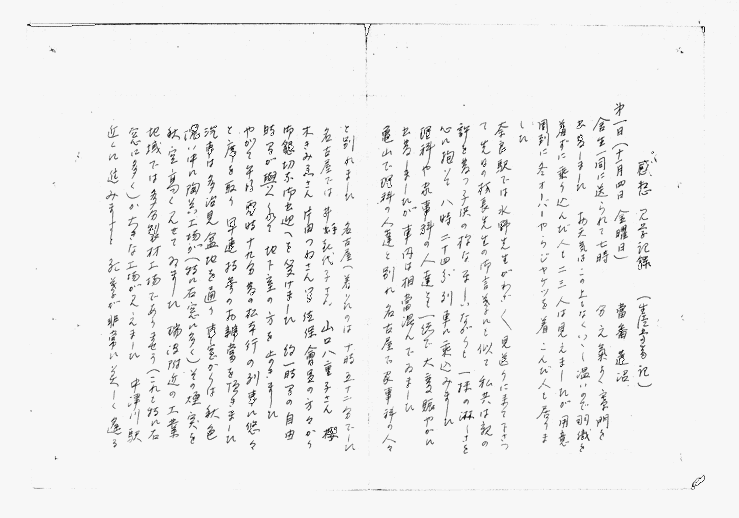 感想 見学記録 (生座寺書記)
第一日(十月四日 金曜日) 当番 蓮沼
舎生一同に送られて七時 分元気よく寮門を
出発しました お天気はこの上もなくいゝし温いので羽織を
着ずに乗り込んだ人も二三人は見えましたが用意
周到に冬オーバーやらジヤケツを着こんだ人も居りま
した
奈良駅では水野先生がわざ〱見送りに来て下さつ
て先日の校長先生の御言葉に似て私共は親の
許を立つ子供の様な楽しいながらも一抹の淋しさを
心に抱いて八時二十四分列車に乗込みました
理科や家事科の人達も一緒で大変賑やかに
出発しましたが車内は相当混んでゐました
亀山で理科の人達と別れ名古屋で家事科の人々
と別れました 名古屋へ着いたのは十時五十二分でした
名古屋では 井 代子さん 山口八重子さん 櫻
木きみゑさん 片由つねさん 佐保會員の方々から
御親切な御出迎へを受けました 約一時間の自由
時間が與へられて地下室の方を
やがて午後零時十九分発の松本行の列車に悠々
と席を取り早速持参のお辨當を頂きました
汽車は多治見盆地を通り車窓からは秋色
濃い中に陶器工場が(特に右窓に多く)その煙突を
秋空高く見せてゐました 瑞浪附近の工業
地域では多分製材工場でありませう(これも特に右
窓に多く)が大きな工場が見えました 中津川駅
近くに進みますと 紅葉が非常に美しく 遥る